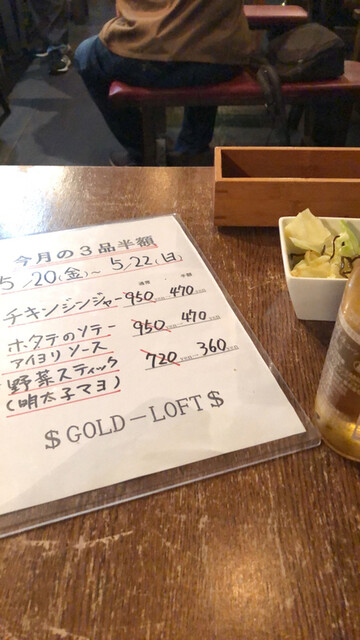 今月の3品半額
5/20(金)~5/22(日)
通常 半額
チキンジンジャー 950 470
ホタテのソテー 950 470
アイヨリソース
野菜スティック 720 360
(明太子マヨ)
$GOLD-LOFT$